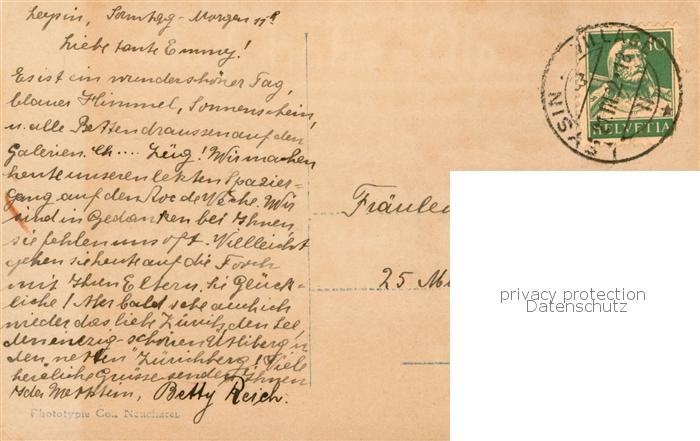 Leysin, Sonntag-Morgen 11h
Liebe tante Emmy!
Es ist ein wunderschöner Tag,
blauer Himmel, Sonnenschein,
u. alle Betten draussen auf den
Galerien. Eh.... Züg! Wir machen
heute unseren letzten Spazier=
gang auf den Roc de Veche. Wir
sind in Gedanken bei Ihnen,
sie fehlen uns oft. Villeicht
gehen sie heut auf die Forch
mit Ihren Eltern, sie Glück-
liche! Aber bald sehe auch ich
wieder das liebe Zürich, den See
den einzig-schönen Ütliberg u
den netten "Zürichberg! Viele
herzliche Grüsse sendet Ihnen
Betty Reich.
Phototypie Co., Neuchatel
VILLAGE
LEYSIN
10
HELVETIA
Fräulei
25 Mu
privacy protection
Datenschutz